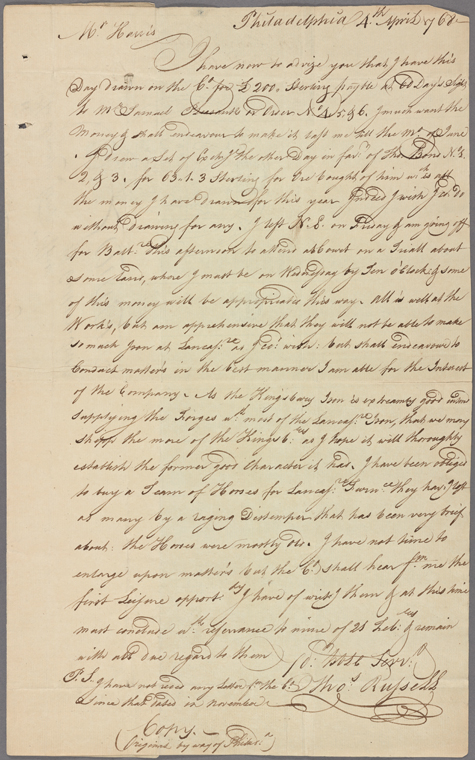 Philadelphia 4th April 1768
Mr Harris
I have now to advize you that I have this
Day drawn on the Co. for £200. Sterling payble 60 Days Sight
to Mr Samuel or Order No. 4. 5. & 6. I much want the
Money & shall endeavour to make it last me till the Mo. of June
I drew a Set of Exch. the other Day in favr. of Thos. No. 1.
2. & 3. for 63.1.3 Sterling for Ore bought of him wch. is all
the money I have drawn for this year I wish I co. do
without Drawing for any. I left N. E. on Friday & am going off
for Balt. this afternoon to attend at Court on a Triall about
some Land, where I must be on Wednsday by Ten o'Clock: & some
of this money will be appropriated this way. All is well at the
Work's, but am apprehensive that they will not be able to make
so much Iron at Lancasre. as I co: wish: but shall endeavour to
Conduct matters in the best manner I am able for the Interest
of the Company. As the Kingsbury Iron is extreamly good
supplying the Forges wth. most of the Lancasre. Iron, that we may
shipp the more of the Kingsb: as I hope it will thoroughly
establish the former good Character it had. I have been obliged
to buy a Team of Horses for Lancasre. Furnce. they having lost
as many by a raging Distemper that has been very brief
about: the Horses were mostly old. I have not time to
enlarge upon matters but the Co. shall hear fm. me the
first Leisure opporty. I have of writg. them & at this time
must conclude wth. referrance to mine of 25 Feb. & remain
with all due regard to them
Servt.
P.S. I have not recd any Letter fm. the Co. Thos. Russell
since that dated in November
Copy.
(Original by way of Philada.)